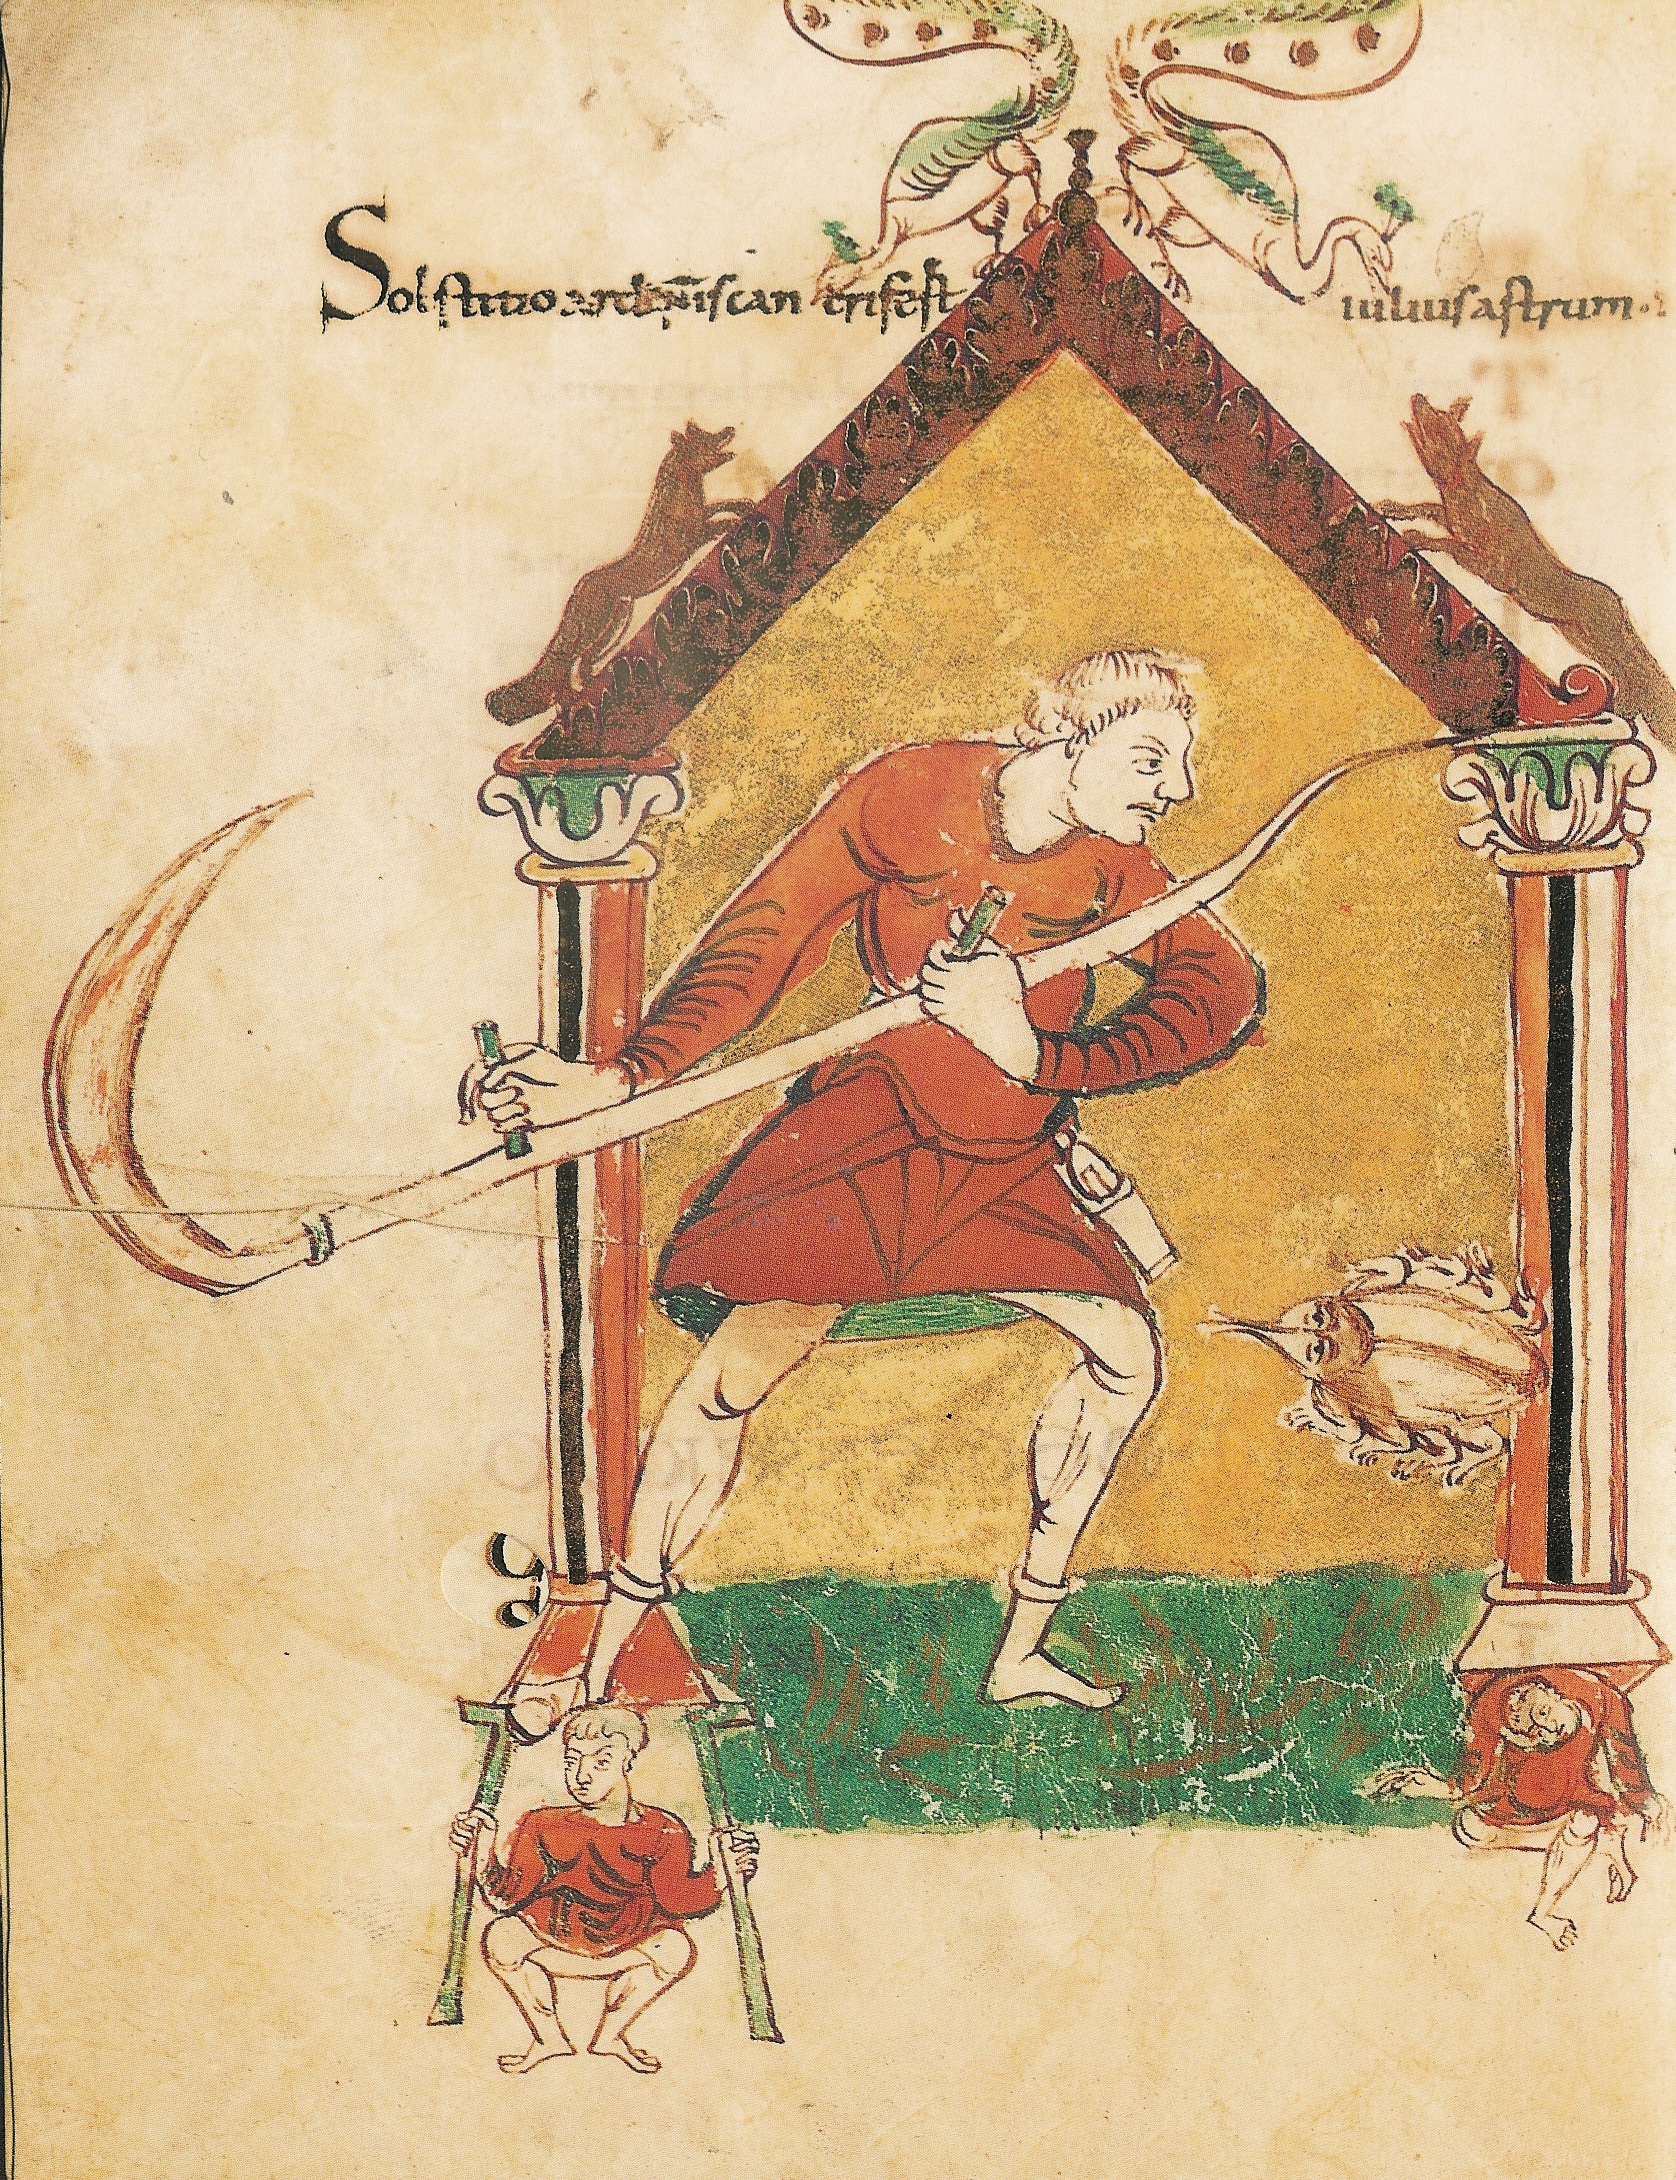 Solstitio ardentis can cris est iulius astrum.